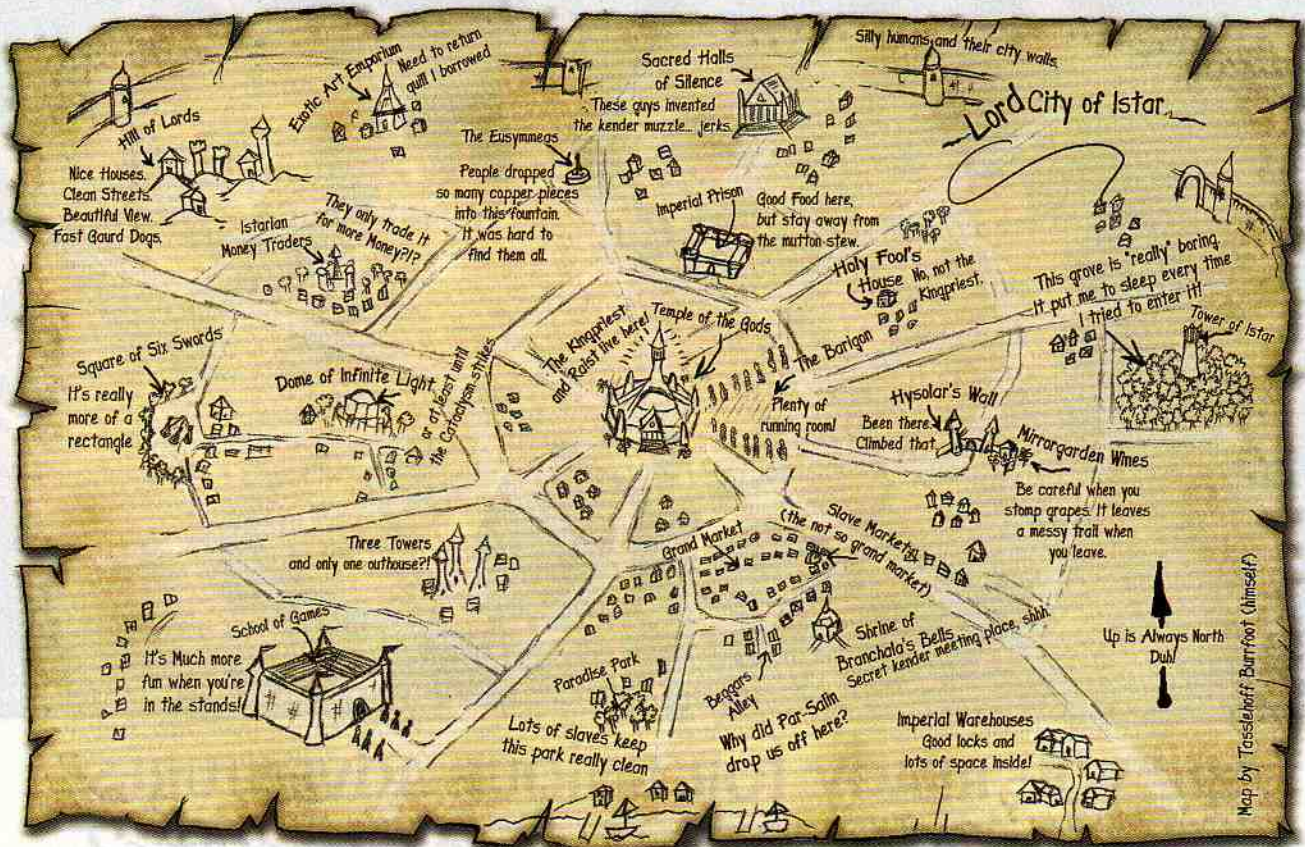 Silly humans and their city walls.
Lord City of Istar
Exotic Art Emporium
Need to return
quill I borrowed
Sacred Halls
of Silence
These guys invented
the kender muzzle... jerks.
Hill of Lords
Nice Houses.
Clean Streets.
Beautiful View.
Fast Gaurd Dogs.
The Eusymmeas
People dropped
so many copper pieces
into this fountain.
It was hard to
find them all.
Istarian
Money Traders
They only trade it
for more Money?!?
Imperial Prison
Good Food here,
but stay away from
the mutton stew.
Holy Fool's
House
No, not the
Kingpriest.
This grove is "really" boring.
It put me to sleep every time
I tried to enter it!
Tower of Istar
The Kingpriest
and Raist live here!
or at least until
the Cataclysm strikes
Temple of the Gods
The Barigon
Plenty of
running room!
Square of Six Swords
It's really
more of a
rectangle
Dome of Infinite Light
Hysolar's Wall
Been there.
Climbed that.
Mirrorgarden Wines
Be careful when you
stomp grapes. It leaves
a messy trail when
you leave.
Three Towers
and only one outhouse?!
Grand Market
Slave Market
(the not so grand market)
School of Games
It's Much more
fun when you're
in the stands!
Paradise Park
Lots of slaves keep
this park really clean
Beggars
Alley
Why did Par-Salin
drop us off here?
Shrine of
Branchala's Bells
Secret kender meeting place, shhh.
Imperial Warehouses
Good locks and
lots of space inside!
Up is Always North
Duh!
Map by Tasslehoff Burrfoot (himself)